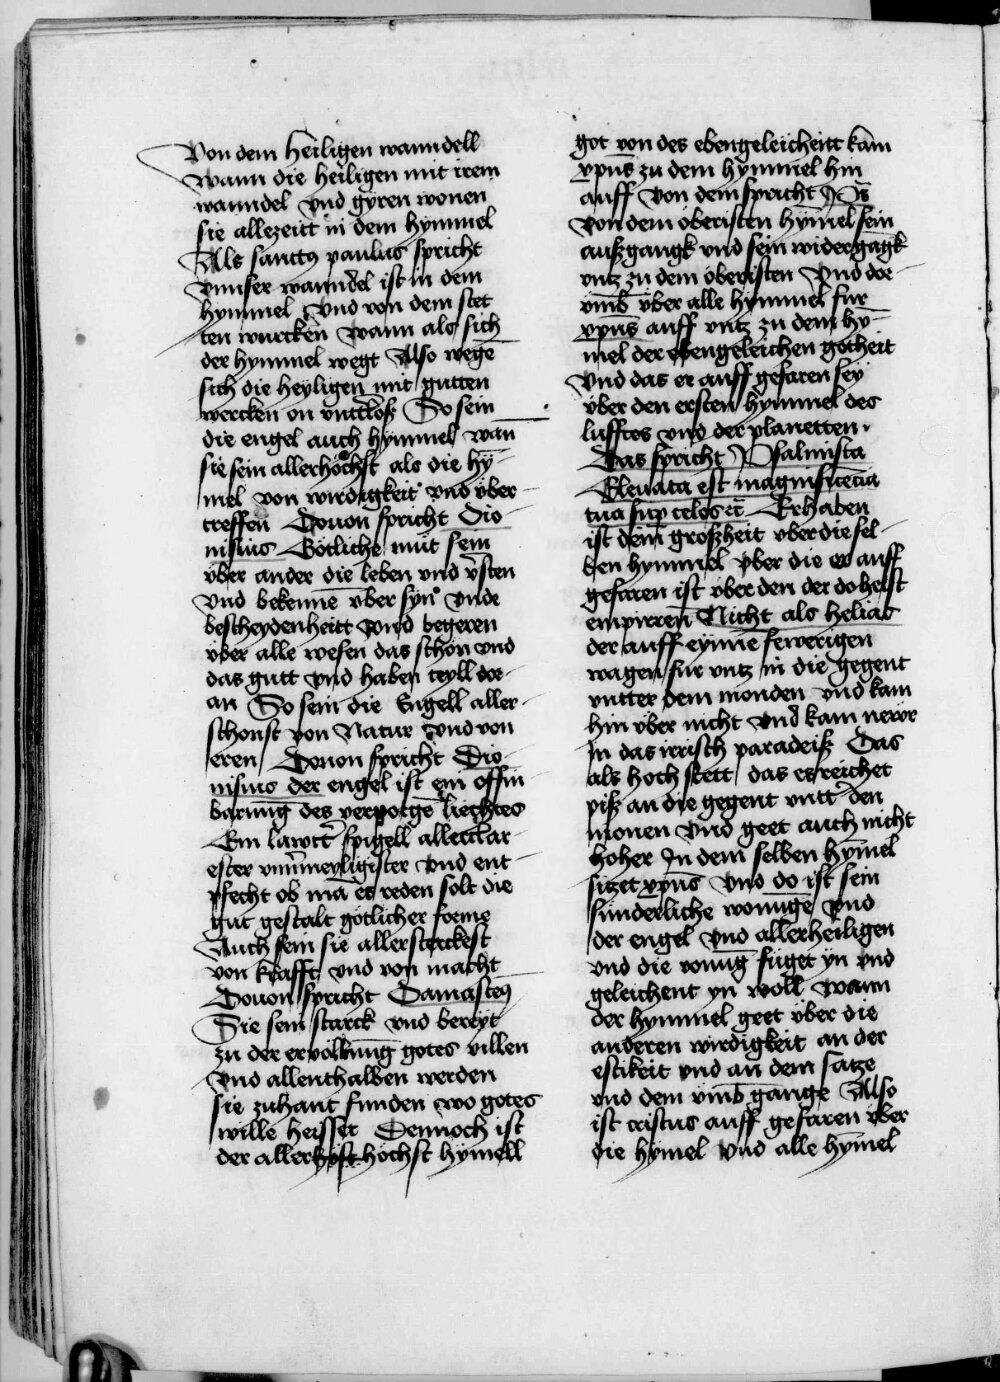 Von dem heiligen wanndell
Wann die heiligen mit irem
wanndel vnd gyren wonen
sie allezeitt in dem hymmel
Als sanctus paulus spricht
Vnnser wanndel ist in dem
hymmel Vnd von dem stet
ten wurcken Wann als sich
der hymmel wegt Also wegē
sich die heyligen mit gutten
wercken on vntterloß So sein
die engel auch hymmel wan̄
sie sein allerhöchst als die hȳ-
mel von wirdigkeit vnd vber-
treffen Douon spricht Dio-
nisius Götliche mut sein
vber ander die leben vnd v̓sten
Vnd bekennē vber syn̄ vnde
bescheydenheitt Vnd begeren
vber alle wesen das schon vnd
das gutt Vnd haben teyll dor-
an So sein die Engell aller-
schonst von Natur Vnd von
eren Douon spricht Dio-
nisius der engel ist ein offin-
barung des verporgē liechtes
Ein lawtter spigell allerclar-
ester vnuermeyligister Vnd ent-
pfecht ob mā es reden solt die
gut gestalt götlicher forme
Auch sein sie allersterckest
von krafft vnd von macht
Douon spricht Damascenus
Sie sein starck vnd bereyt
zu der ervolkung gotes villen
Vnd allenthalben werden
sie zuhant funden wo gotes
wille heisset Dennoch ist
der allerhöst höchst hymell
got von des ebengeleicheitt kam
xp̄us zu dem hymmel hin
auff Von dem spricht Ps̄
Von dem öberisten hymel sein
außgangk vnd sein widergāgk
vntz zu dem öberisten Vnd dor-
vmb vber alle hymmel fur
xp̄us auff vntz zu dem hȳ-
mel der ebengeleichen gotheit
Vnd das er auff gefaren sey
vber den ersten hymmel des
lufftes vnd der planetten.
Das spricht Psalmista
Eleuata est magnificētia
tua sup celos etc̄ Erhaben
ist dein großheit vber die sel-
ben hymmel vber die er auff
gefaren ist vber den der do heist
empirreū Nicht als helias
der auff eynnē fewerigen
wagen fur vntz in die gegent
vntter dem monden vnd kam
hin vber nicht Vnd kam newr
in das irrisch paradeiß Das
als hoch stett das es reichet
piß an die gegent vntt̓ den
monen Vnd geet auch nicht
hoher In dem selben hymel
sitzet xp̄us Vnd do ist sein
sunderliche wonūge Vnd
der engel vnd allerheiligen
vnd die vonūg fuget yn vnd
geleichent yn woll Wann
der hymmel geet vber die
anderen wirdigkeit an der
estikeit vnd an dem satze
vnd dem vmbgange Also
ist cristus auff gefaren vber
die hymel Vnd alle hymel